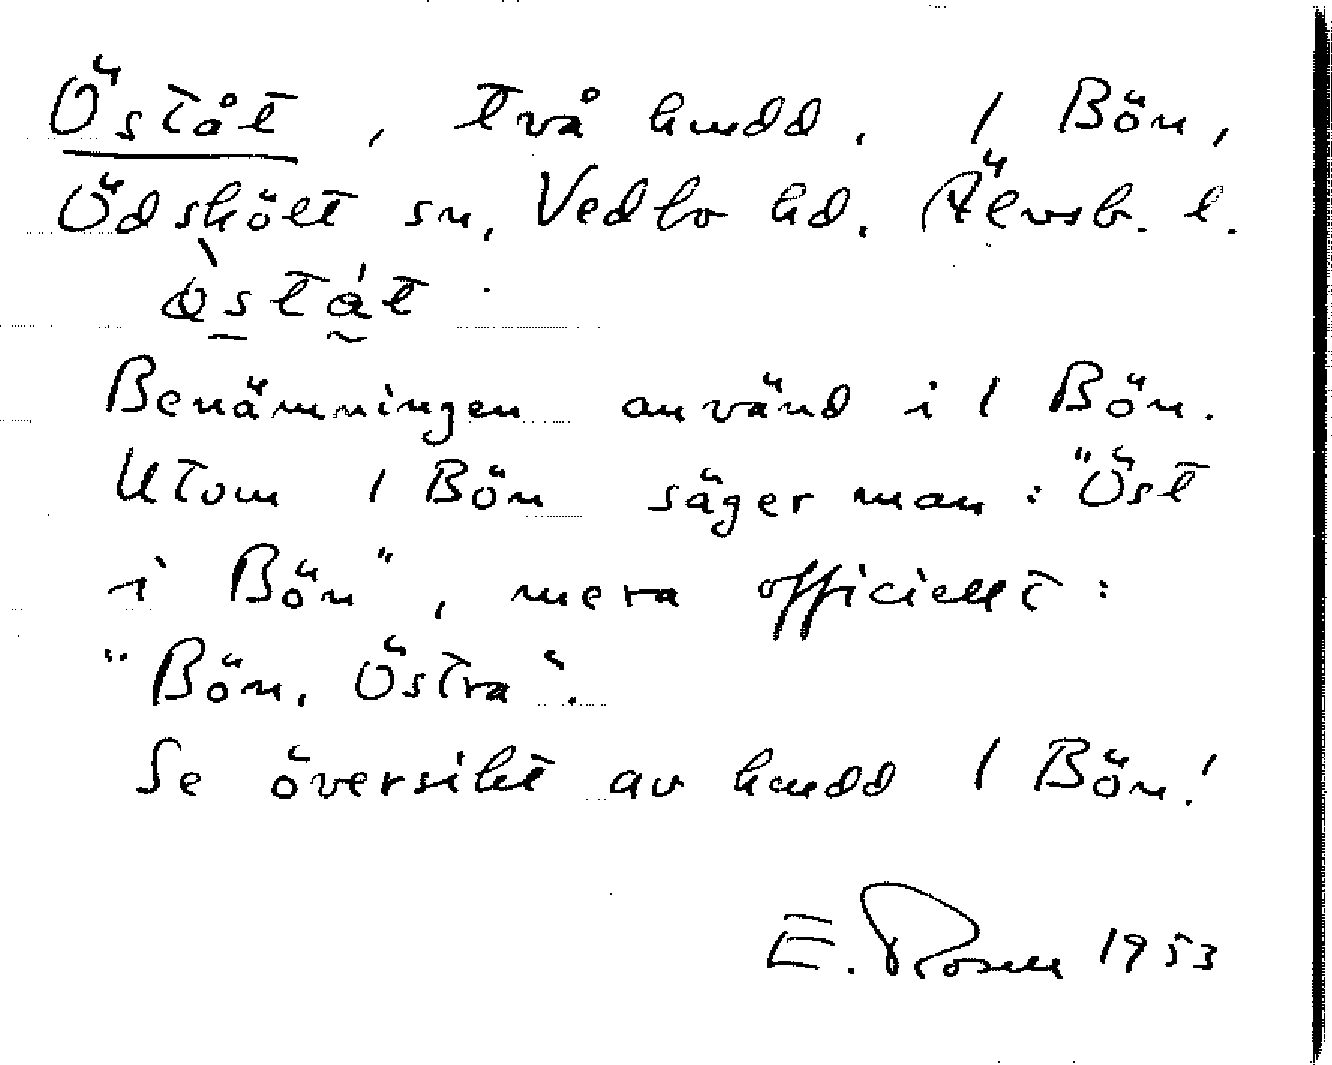 Öståt, två hmdd. 1 Bön,
Ödskölt sn, Vedbo hd. Älvsb. l.
Benämningen använd i 1 Bön.
Utom 1 Bön säger man: "Öst
i Bön", mera officiellt:
"Bön, Östra".
Se översikt av hmdd 1 Bön!
E. Rosell 1953